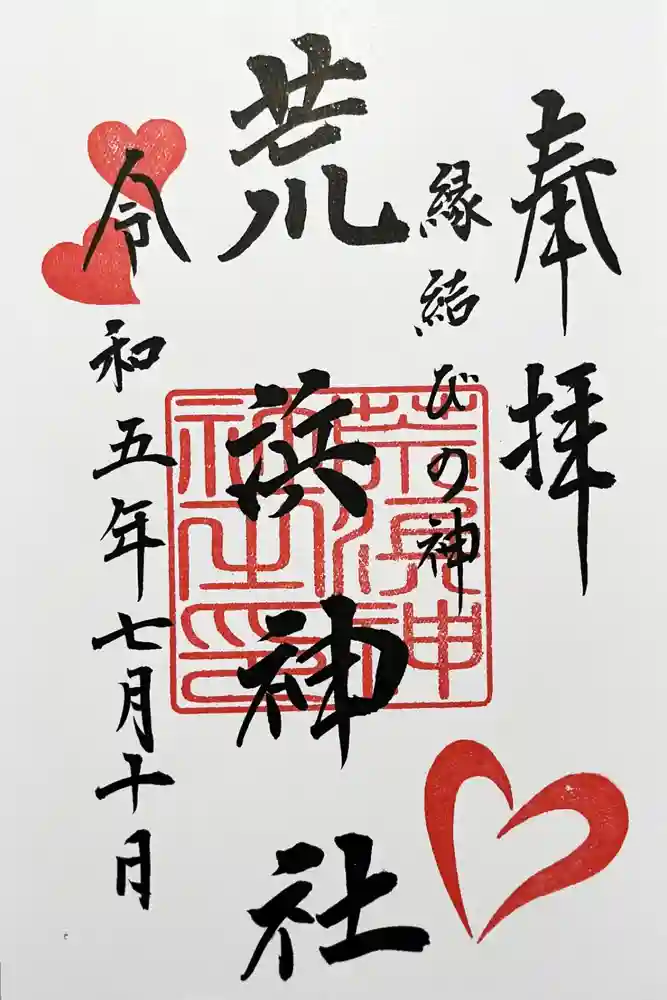 奉拝
縁結びの神
荒浜神社
荒濱神社之印
令和五年七月十日